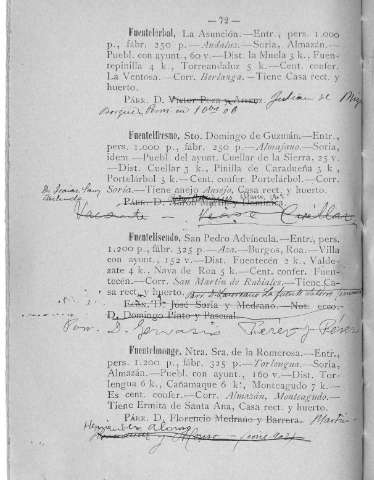 — 72 —
Fuentelárbol, La Asunción.—Entr., pers. 1.000
p., fábr. 250 p.—Andaluz.—Soria, Almazán.—
Puebl. con ayunt., 60 v.—Dist. la Muela 3 k., Fuen-
tepinilla 4 k., Torreandaluz 5 k.—Cent. confer.
La Ventosa.—Corr. Berlanga.—Tiene Casa rect. y
huerto.
PÁRR. D. Víctor Julián de
Fuentelfresno, Sto. Domingo de Guzmán.—Entr.,
pers. 1.000 p., fábr. 250 p.—Almajano.—Soria,
idem.—Puebl. del ayunt. Cuellar de la Sierra, 25 v.
—Dist. Cuellar 3 k., Pinilla de Caradueña 3 k.,
Portelárbol 3 k.—Cent. confer. Portelárbol.—Corr.
Soria.—Tiene anejo Ausejo, Casa rect. y huerto.
PÁRR. D.
Vacante - Cuellar
Fuentelisendo, San Pedro Advíncula.—Entr., pers.
1.200 p., fábr. 325 p.—Aza.—Burgos, Roa.—Villa
con ayunt., 152 v.—Dist. Fuentecén 2 k., Valde-
zate 4 k., Nava de Roa 5 k.—Cent. confer. Fuen-
tecén.—Corr. San Martín de Rubiales.—Tiene Ca-
sa rect. y huerto.
José Soria y Medrano.
D. Domingo Pinto y Pascual.
D. Gervasio Pérez
Fuentelmonge, Ntra. Sra. de la Romerosa.—Entr.,
pers. 1.200 p., fábr. 325 p.—Torlengua.—Soria,
Almazán.—Puebl. con ayunt., 160 v.—Dist. Tor-
lengua 6 k., Cañamaque 6 k., Monteagudo 7 k.—
Es cent. confer.—Corr. Almazán, Monteagudo.—
Tiene Ermita de Santa Ana, Casa rect. y huerto.
PÁRR. D. Florencio Medrano y Barrera. Martín
Hernández Alonso